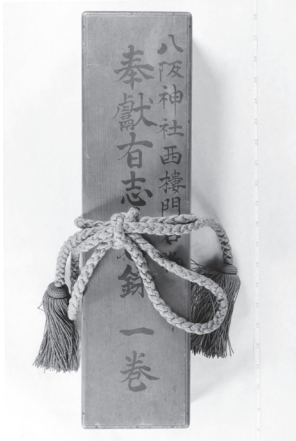 八阪神社西樓門
奉獻有志錄一巻